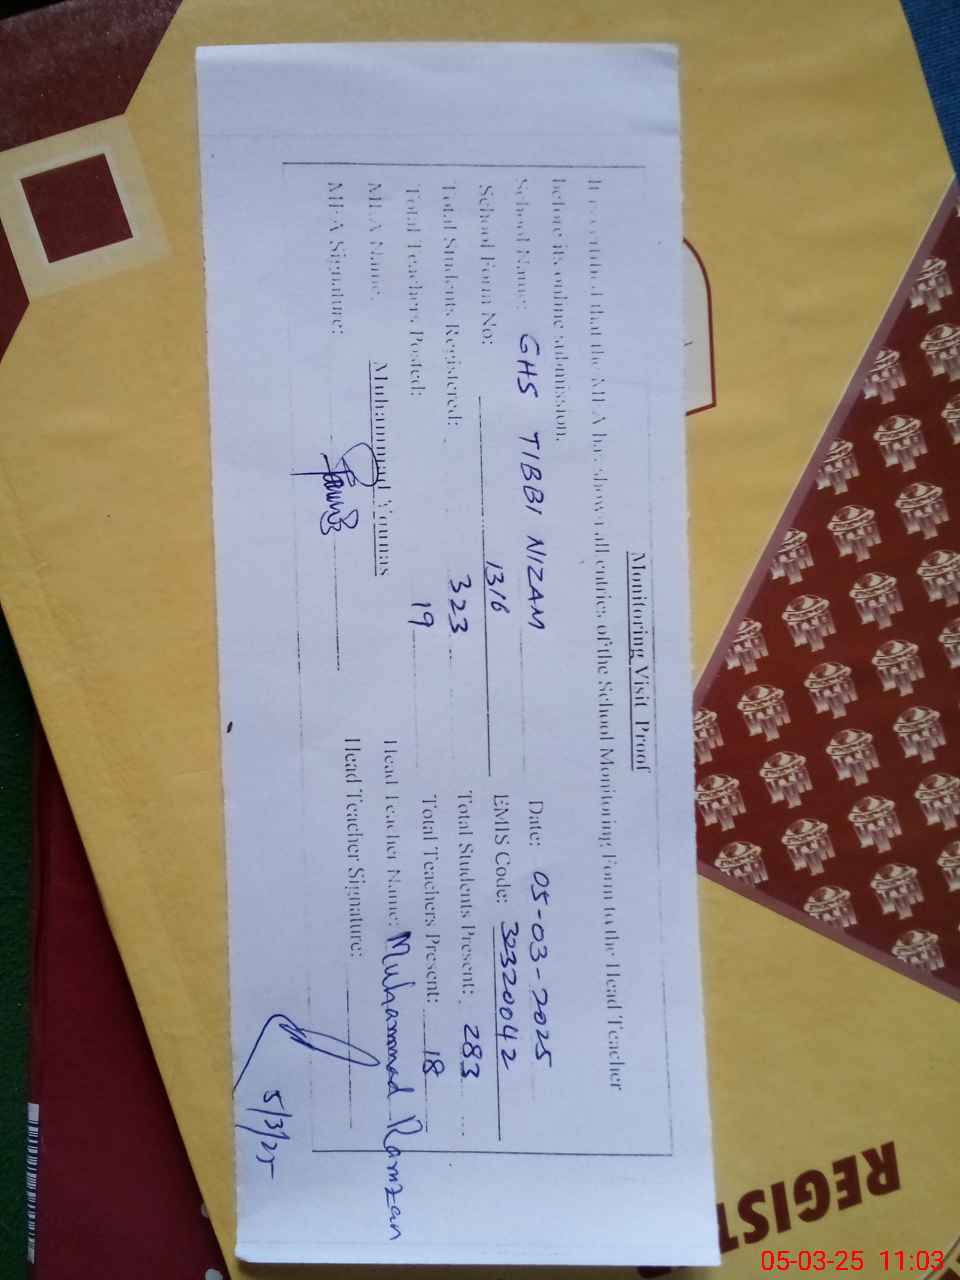 Monitoring Visit Proof
It is certified that the MEA has shown all entries of the School Monitoring Form to the Head Teacher
before its online submission.
School Name: GHS TIBBI NIZAM Date: 05-03-2025
School Form No: 1316 EMIS Code: 32320042
Total Students Registered: 323 Total Students Present: 283
Total Teachers Posted: 19 Total Teachers Present: 18
MEA Name: Muhammad Younas Head Teacher Name: Muhammad Ramzan
MEA Signature: Head Teacher Signature:
5/3/25
REGIST
05-03-25 11:03